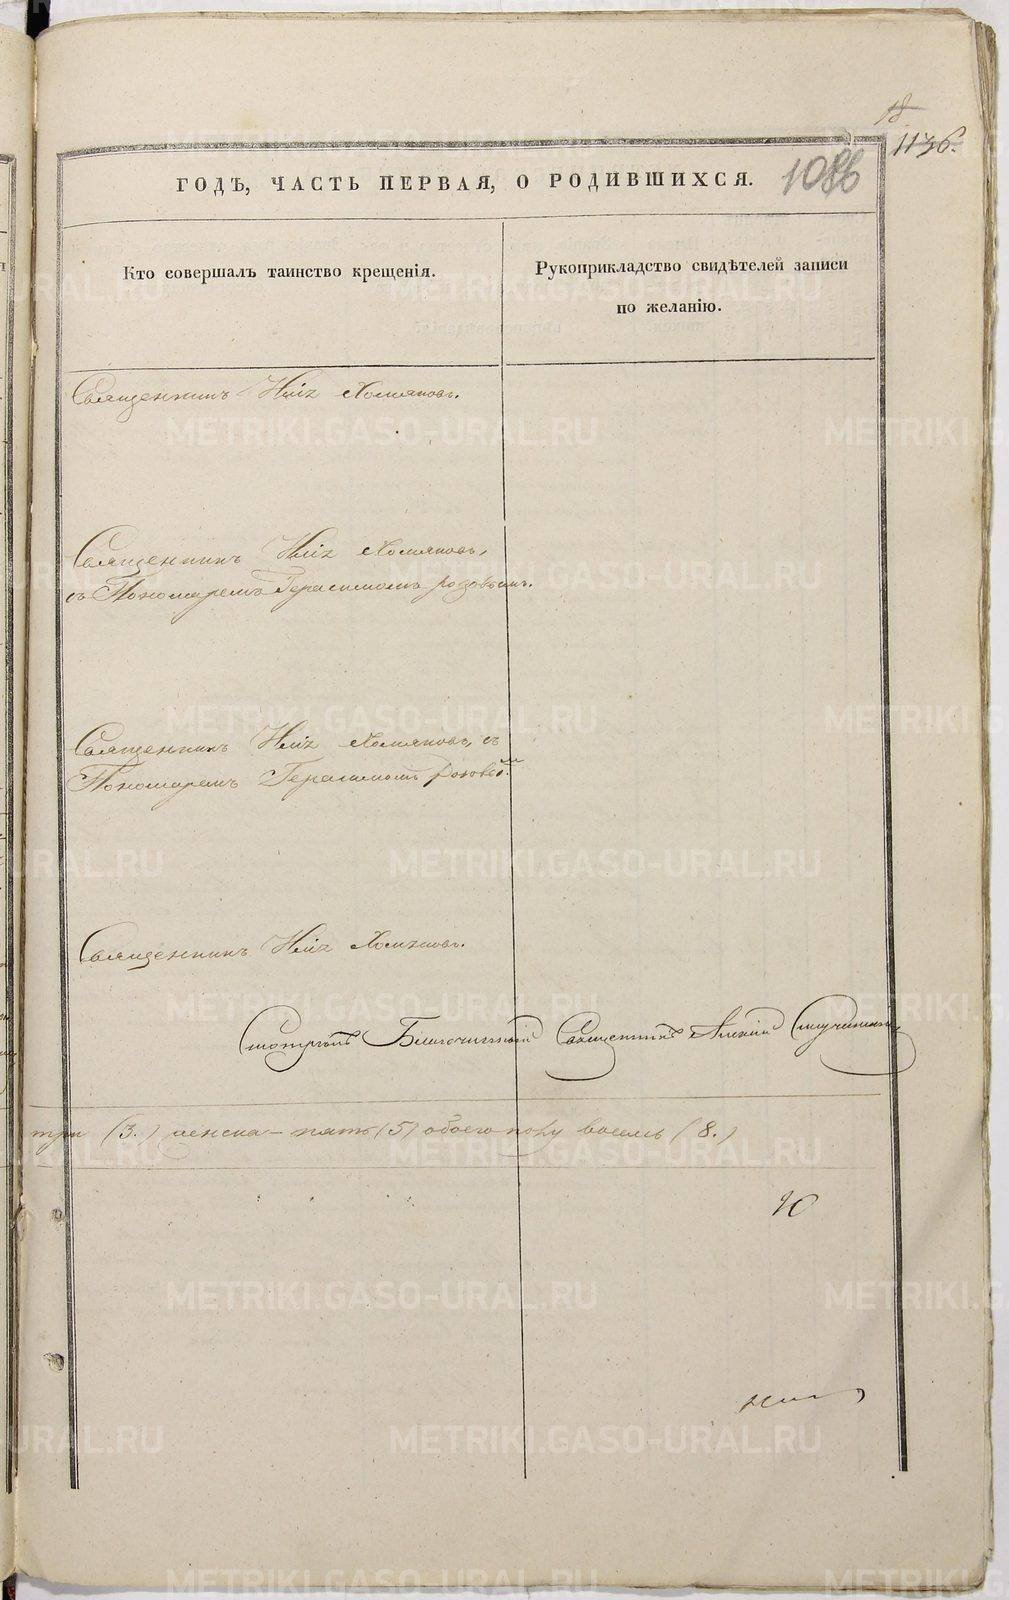 18
1136.
1086
ГОДѢ, ЧАСТЬ ПЕРВАЯ, О РОДИВШИХСЯ.
Кто совершалъ таинство крещенія.
Рукоприкладство свидѣтелей записи
по желанію.
Священникъ Хомяковъ.
Священникъ Хомяковъ,
съ Пономаремъ Герасимомъ Розовымъ.
Священникъ Хомяковъ, съ
Пономаремъ Герасимомъ Розовы.мъ
Священникъ Хомяковъ.
Смотрѣлъ Благочинный Священникъ
три (3.) женска – пять (5) обоего полу восемь (8.)
METRIKI.GASO-URAL.RU